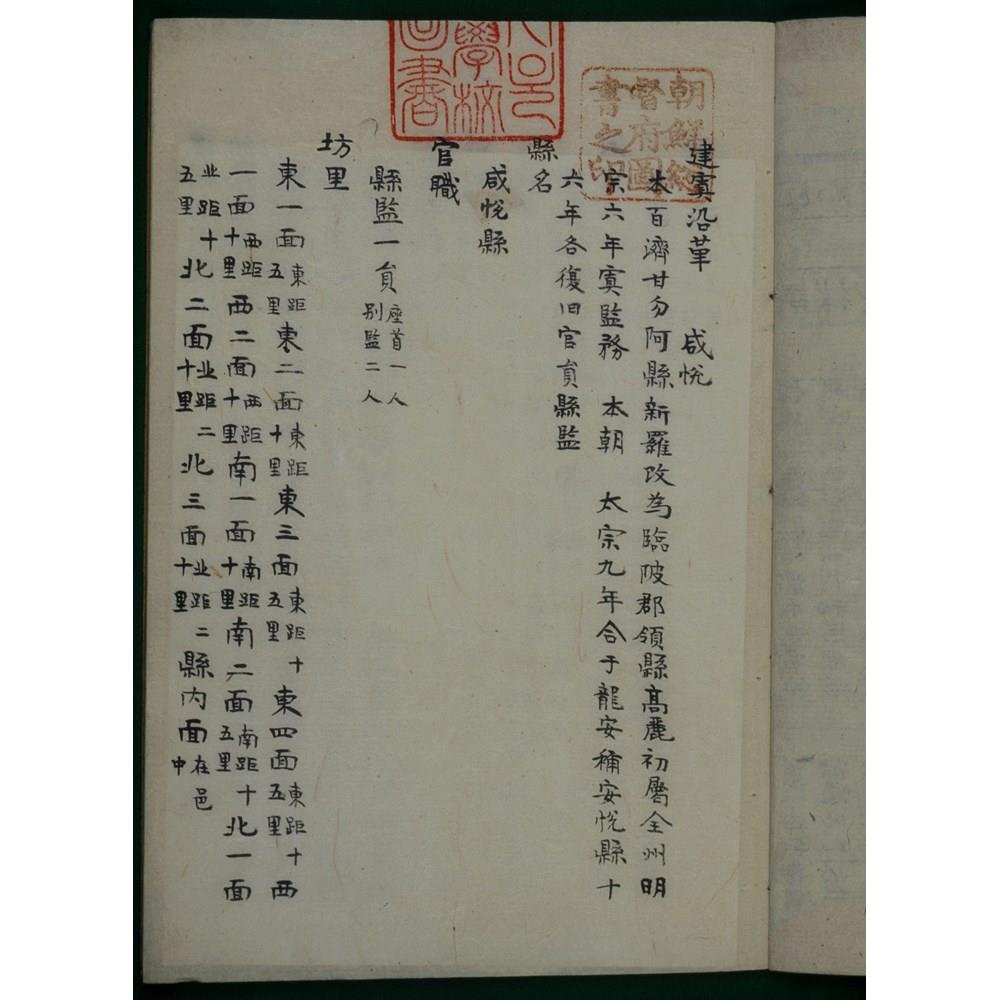 建寘沿革 咸悅
本百濟甘勿阿縣新羅改為臨陂郡領縣高麗初屬全州明
宗六年寘監務 本朝 太宗九年合于龍安稱安悅縣十
六年各復旧官員縣監
縣名
咸悅縣
官職
縣監一員座首一人別監二人
坊里
東一面東距五里東二面東距十里東三面東距十五里東四面東距十五里西
一面西距十里西二面西距十里南一面南距十里南二面南距十五里北一面
北距十五里北二面北距二十里北三面北距二十里縣内面在邑中
朝鮮總
督府圖
書之印
學校
書